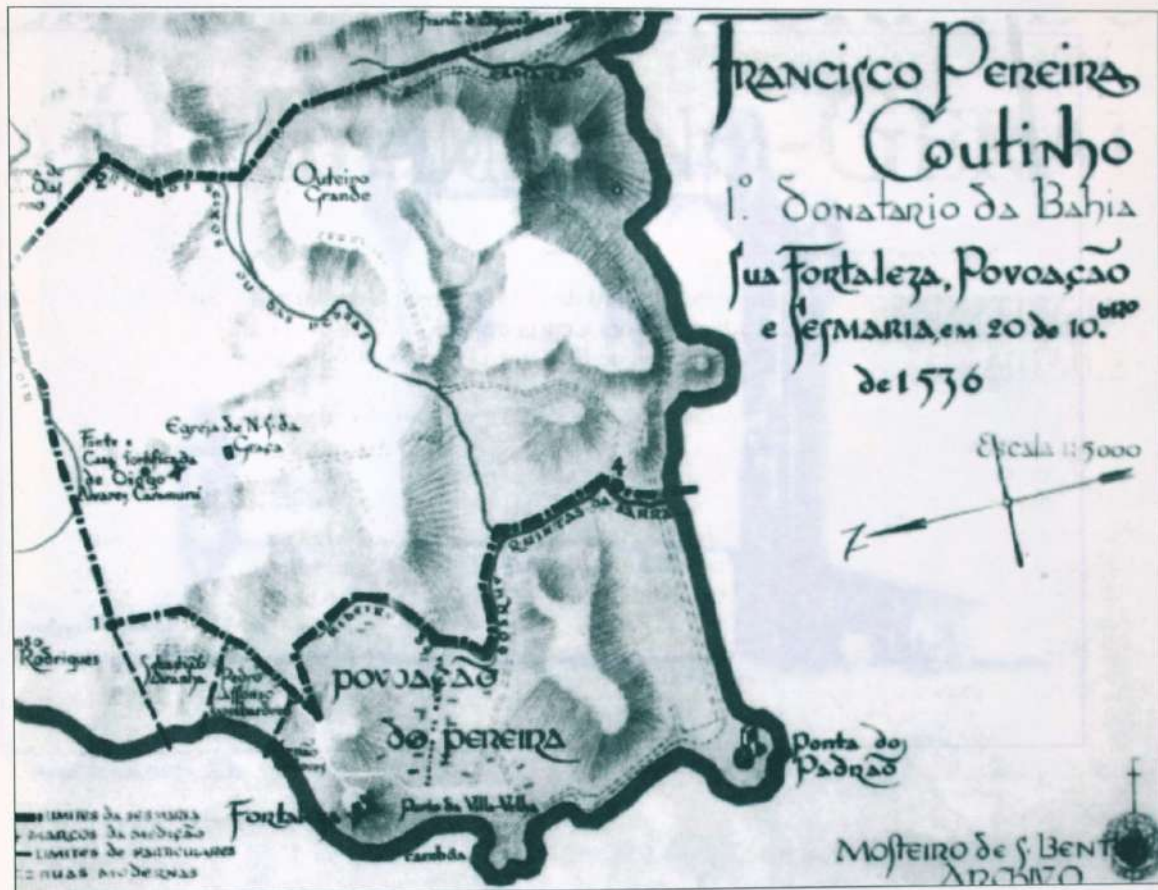 Francisco Pereira
Coutinho
1.º Donatario da Bahia
sua Fortaleza, Povoação
e Sesmaria, em 20 de 10.bro
de 1536
Escala 1:5000
Outeiro
Grande
2
RIO
DOS
OU DAS
Egreja de N. S. da
Graça
Fonte e
Casa fortificada
de Diogo
Alvarez Caramurú
4
QUINTAS DA BARRA
1
Rodrigues
Pedro
Affonso
Povoação
do Pereira
Ponta do
Padrão
Fortaleza
Porto da Villa Velha
LIMITES DA SESMARIA
MARCOS DA MEDIÇÃO
LIMITES DE PARTICULARES
RUAS MODERNAS
Mosteiro de S. Bent
Archivo